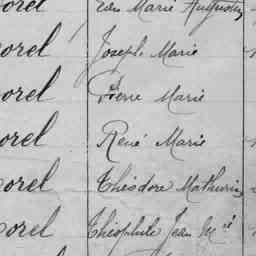 orel Jean Marie Augustin
orel Joseph Marie
orel Pierre Marie
orel René Marie
orel Théodore Mathurin
orel Théophile Jean Mie